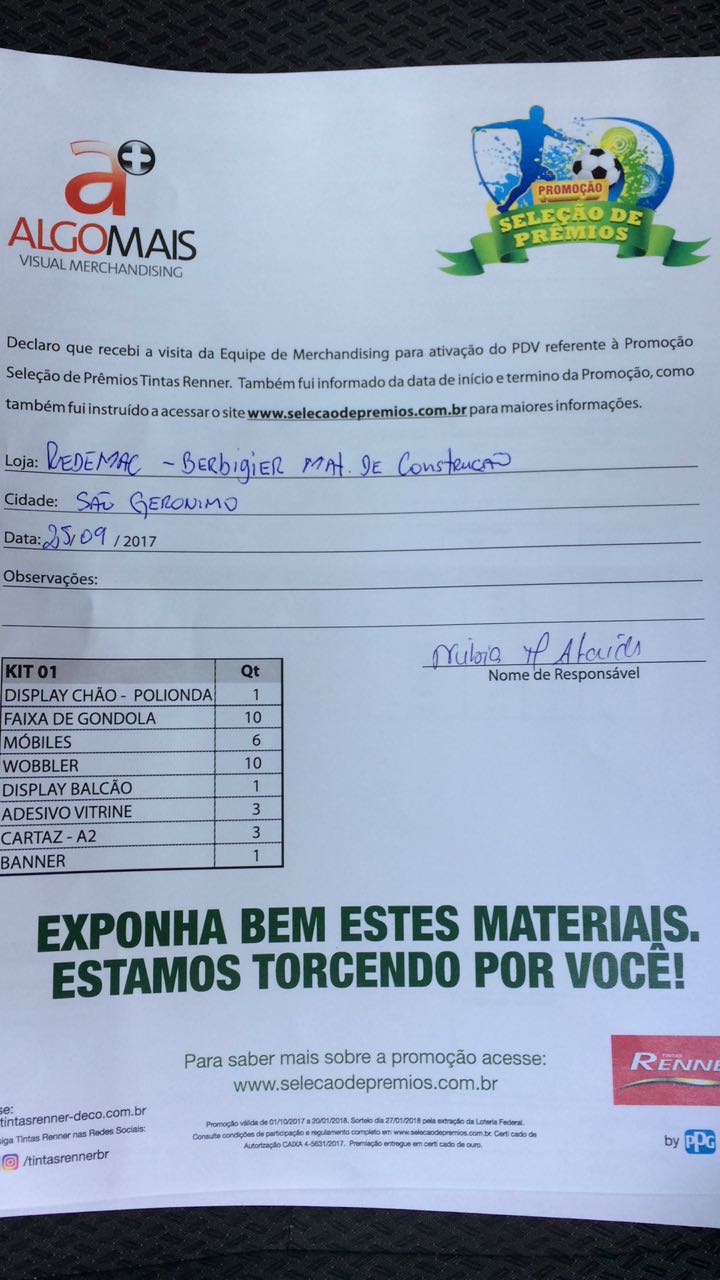 a+
ALGOMAIS
VISUAL MERCHANDISING
PROMOÇÃO
SELEÇÃO DE
PRÊMIOS
Declaro que recebi a visita da Equipe de Merchandising para ativação do PDV referente à Promoção
Seleção de Prêmios Tintas Renner. Também fui informado da data de início e termino da Promoção, como
também fui instruído a acessar o site www.selecaodepremios.com.br para maiores informações.
Loja: REDEMAC - BERBIGIER MAT. DE CONSTRUCAO
Cidade: SÃO GERONIMO
Data: 25/09 / 2017
Observações:
Nome de Responsável
KIT 01 Qt
DISPLAY CHÃO - POLIONDA 1
FAIXA DE GONDOLA 10
MÓBILES 6
WOBBLER 10
DISPLAY BALCÃO 1
ADESIVO VITRINE 3
CARTAZ - A2 3
BANNER 1
EXPONHA BEM ESTES MATERIAIS.
ESTAMOS TORCENDO POR VOCÊ!
Para saber mais sobre a promoção acesse:
www.selecaodepremios.com.br
TINTAS
RENNE
se:
tintasrenner-deco.com.br
iga Tintas Renner nas Redes Sociais:
/tintasrennerbr
Promoção válida de 01/10/2017 a 20/01/2018. Sorteio dia 27/01/2018 pela extração da Loteria Federal.
Consulte condições de participação e regulamento completo em www.selecaodepremios.com.br. Certi cado de
Autorização CAIXA 4-5631/2017. Premiação entregue em certi cado de ouro.
by PPG